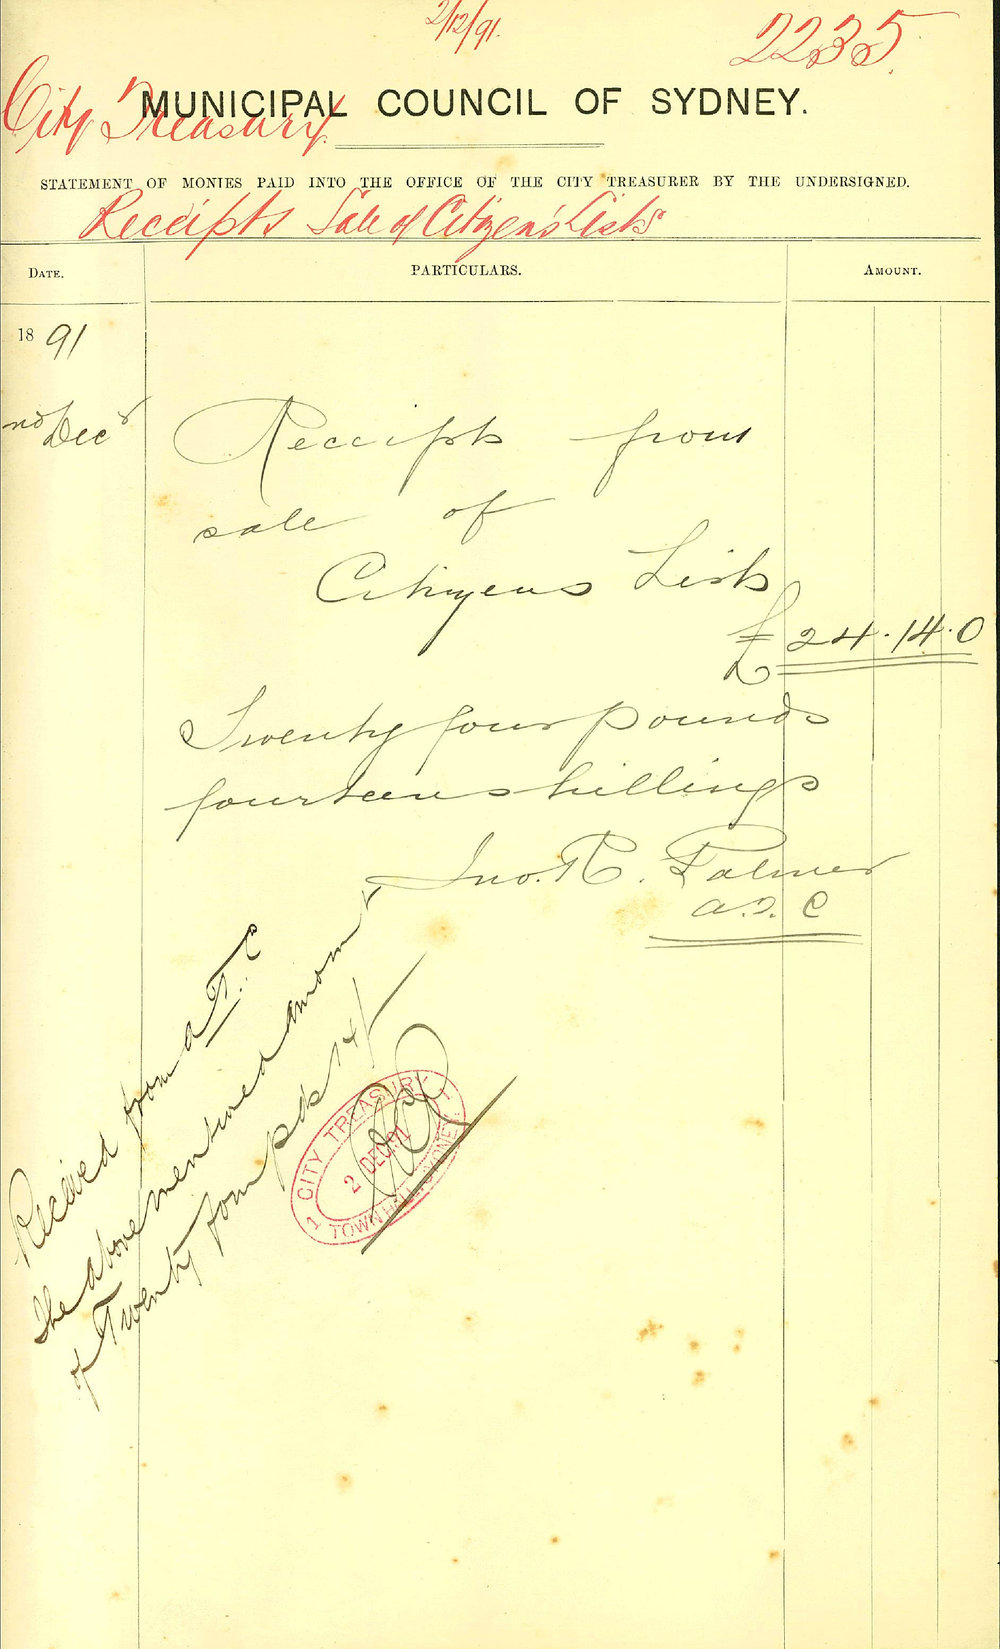 2/12/91.
2235.
City Treasury.
MUNICIPAL COUNCIL OF SYDNEY.
STATEMENT OF MONIES PAID INTO THE OFFICE OF THE CITY TREASURER BY THE UNDERSIGNED.
Receipts Sale of Citizens' Lists
DATE. PARTICULARS. AMOUNT.
1891
nd Decr Receipts from
sale of
Citizens Lists
£24.14.0
Twenty four pounds
fourteen shillings
Jno. R. Palmer
A.T.C
Received from A.T.C
the above mentioned amount
of Twenty four pds 14/-
CITY TREASURY
2 DEC 91
TOWN HALL SYDNEY